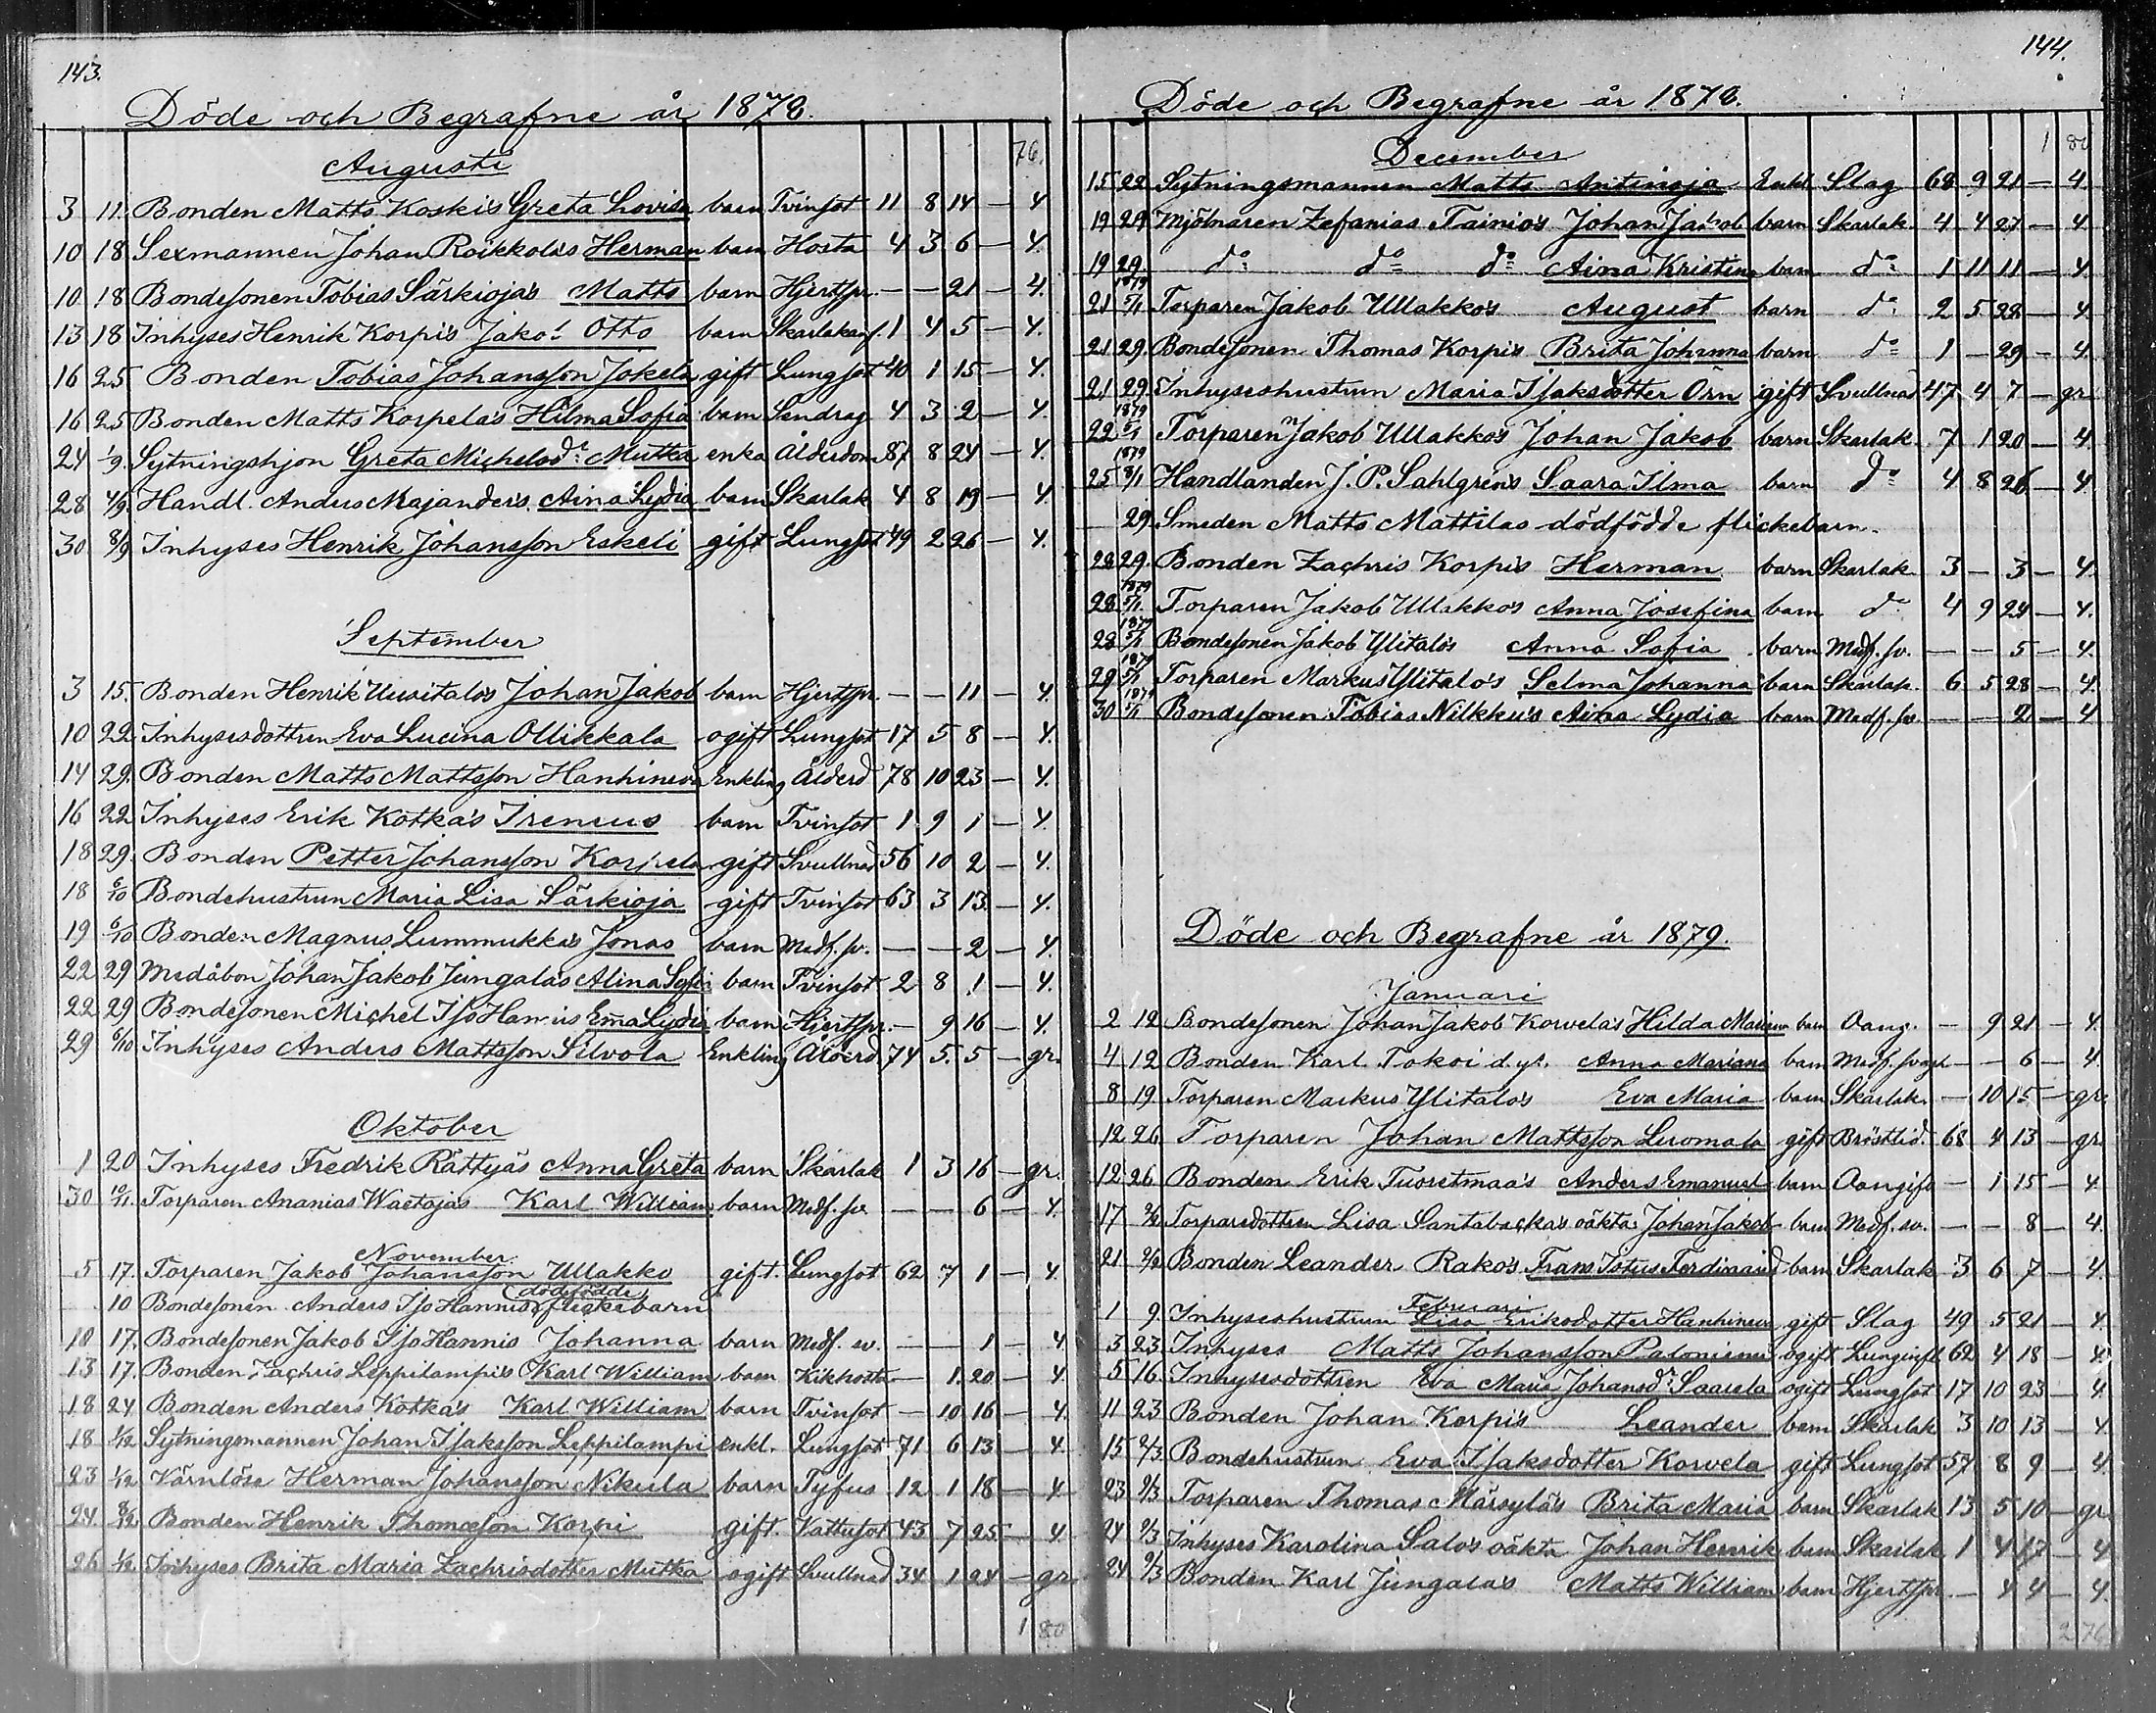 143.
Döde och Begrafne år 1878.
76.
Augusti
3 11. Bonden Matts Koski's Greta Lovisa barn Tvinsot 11 8 14 — 4
10 18 Sexmannen Johan Roikkola's Herman barn Hosta 4 3 6 — 4.
10 18 Bondesonen Tobias Särkioja's Matts barn Hjertspr. — — 21 — 4.
13 18 Inhyses Henrik Korpi's Jakob Otto barn Skarlakansf. 1 4 5 — 4.
16 25 Bonden Tobias Johansson Jokela gift Lungsot 40 1 15 — 4.
16 25 Bonden Matts Korpela's Hilma Sofia barn Sendrag 4 3 2 — 4.
24 1/9. Sytningshjon Greta Michelsdr: Mutka enka Ålderdom 87 8 24 — 4.
28 4/9. Handl. Anders Majander's Aina Lydia barn Skarlak 4 8 19 — 4
30 8/9 Inhyses Henrik Johansson Eskeli gift Lungsot 49 2 26 — 4.
September
3 15. Bonden Henrik Uusitalo's Johan Jakob barn Hjertspr. — — 11 — 4.
10 22 Inhysesdottren Eva Lucina Ollikkala ogift Lungsot 17 5 8 — 4.
14 29. Bonden Matts Mattsson Hanhineva Enkling Ålderd 78 10 23 — 4.
16 22 Inhyses Erik Kotka's Ireneus barn Tvinsot 1 9 1 — 4.
18 29. Bonden Petter Johansson Korpela gift Svullnad 56 10 2 — 4.
18 6/10 Bondehustrun Maria Lisa Särkioja gift Tvinsot 63 3 13. — 4.
19 6/10 Bonden Magnus Lummukka's Jonas barn Medf. sv. — — 2 — 4.
22 29 Medåbon Johan Jakob Jungala's Alina Sofia barn Tvinsot 2 8 1 — 4.
22 29 Bondesonen Michel IsoHannis Ema Lydia barn Hjertspr. — 9 16 — 4.
29 6/10 Inhyses Anders Mattsson Silvola Enkling Ålderd. 74 5. 5 — gr.
Oktober
1 20 Inhyses Fredrik Rättyä's Anna Greta barn Skarlak 1 3 16 — gr.
30 10/11. Torparen Ananias Waetoja's Karl William barn Medf. sv — — 6 — 4.
November
5 17. Torparen Jakob Johansson Ullakko gift. Lungsot 62 7 1 — 4.
10 Bondesonen Anders IsoHannis dödfödde flickebarn
10 17. Bondesonen Jakob IsoHannis Johanna barn Medf. sv. — — 1 — 4
13 17. Bonden Zachris Leppilampi's Karl William barn Kikhosta — 1. 20 — 4.
18 24 Bonden Anders Kotka's Karl William barn Tvinsot — 10 16 — 4.
18 1/12 Sytningsmannen Johan Isaksson Leppilampi enkl. Lungsot 71 6 13 — 4
23 1/12 Värnlöse Herman Johansson Nikula barn Tyfus 12 1 18 — 4
24 8/12. Bonden Henrik Thomasson Korpi gift. Vattusot 43 7 25 — 4
26 1/12. Inhyses Brita Maria Zachrisdotter Mutka ogift Svullnad 34 1 24 — gr.
1 80
144.
Döde och Begrafne år 1878.
1 80
December
15 22 Sytningsmannen Matts Antinoja Enkl Slag 68 9 21 — 4.
19 29 Mjölnaren Zefanias Tainio's Johan Jakob barn Skarlak. 4 4 27 — 4
19 29. do: do= do= Aina Kristina barn do: 1 11 11 — 4.
21 1879 5/1 Torparen Jakob Ullakko's August barn do: 2 5 28 — 4.
21 29. Bondesonen Thomas Korpi's Brita Johanna barn do= 1 — 29 — 4.
21 29. Inhyseshustrun Maria Isaksdotter Örn gift Svullnad 47 4 7 — gr
22 1879 5/1 Torparen Jakob Ullakko's Johan Jakob barn Skarlak. 7 1 20 — 4.
25 1879 8/1 Handlanden J. P. Sahlgren's Saara Ilma barn do= 4 8 26 — 4
29. Smeden Matts Mattilas dödfödde flickebarn.
28 29. Bonden Zachris Korpi's Herman barn Skarlak 3 — 3 — 4.
28 1879 5/1. Torparen Jakob Ullakko's Anna Josefina barn do 4 9 24 — 4.
28 1879 5/1 Bondesonen Jakob Ylitalo's Anna Sofia barn Medf. sv. — — 5 — 4.
29 1879 5/1 Torparen Markus Ylitalo's Selma Johanna barn Skarlak. 6 5 28 — 4.
30 1879 5/1 Bondesonen Tobias Nilkku's Aina Lydia barn Medf. sv — — 2 — 4
Döde och Begrafne år 1879.
Januari
2 12 Bondesonen Johan Jakob Korvela's Hilda barn Oang. — 9 21 — 4.
4 12 Bonden Karl Tokoi d. y:s. Anna Mariana barn Medf. — — 6 — 4.
8 19. Torparen Markus Ylitalo's Eva Maria barn Skarlak. — 10 15 — gr.
12 26 Torparen Johan Mattsson Luomala gift Bröstlid. 68 4 13 — gr.
12 26 Bonden Erik Tuoretmaa's Anders Emanuel barn Oangifv — 1 15 — 4.
17 2/2 Torparedottren Lisa Santabacka's oäkta Johan Jakob barn Medf. sv. — — 8 — 4.
21 2/2 Bonden Leander Rako's Frans Ferdinand barn Skarlak 3 6 7 — 4.
Februari
1 9. Inhyseshustrun Lisa Eriksdotter Hanhineva gift Slag 49 5 21 — 4.
3 23 Inhyses Matts Johansson Paloniemi ogift Lunginfl. 62 4 18 — 4.
5 16. Inhysesdottren Eva Maria Johansdr Saarela ogift Lungsot 17 10 23 — 4
11 23 Bonden Johan Korpi's Leander barn Skarlak 3 10 13 — 4.
15 2/3 Bondehustrun Eva Isaksdotter Korvela gift Lungsot 57 8 9 — 4.
23 9/3 Torparen Thomas Märsylä's Brita Maria barn Skarlak 13 5 10 — gr.
24 9/3 Inhyses Karolina Salo's oäkta Johan Henrik barn Skarlak 1 4 17 — 4
24 9/3 Bonden Karl Jungala's Matts William barn Hjertspr. — 4 4 — 4.
2 76